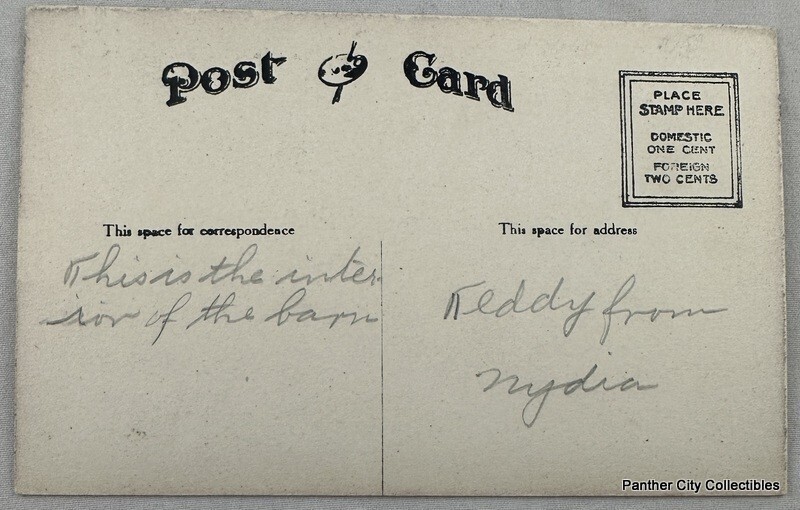 Post Card
PLACE
STAMP HERE
DOMESTIC
ONE CENT
FOREIGN
TWO CENTS
This space for correspondence
This is the inter-
ior of the barn
This space for address
Teddy from
Nydia
Panther City Collectibles